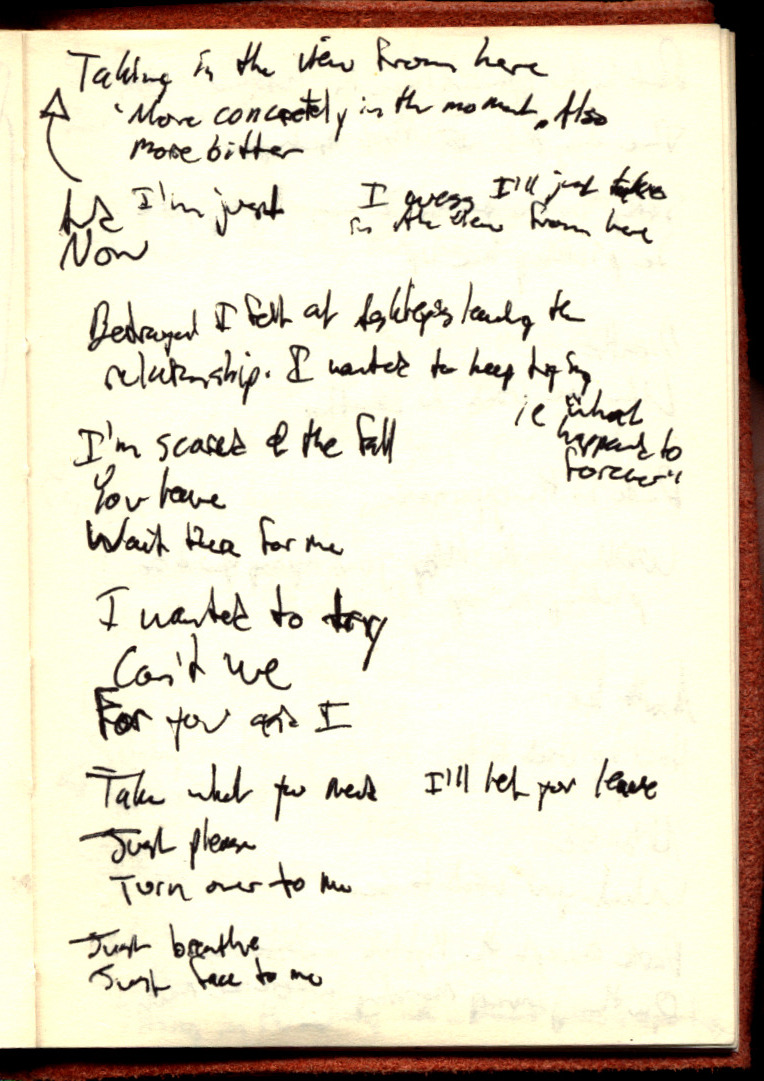 Taking in the view from here
"More concretely in the moment. Also
more bitter
And I'm just
Now
I guess I'll just take
in the view from here
Betrayed I felt at leaving the
relationship. I wanted to keep trying
ie "what
happened to
forever"
I'm scared of the fall
You have
Wait there for me
I wanted to try
Can't we
For you and I
Take what you need I'll let you leave
Just please
Turn over to me
Just breathe
Just face to me